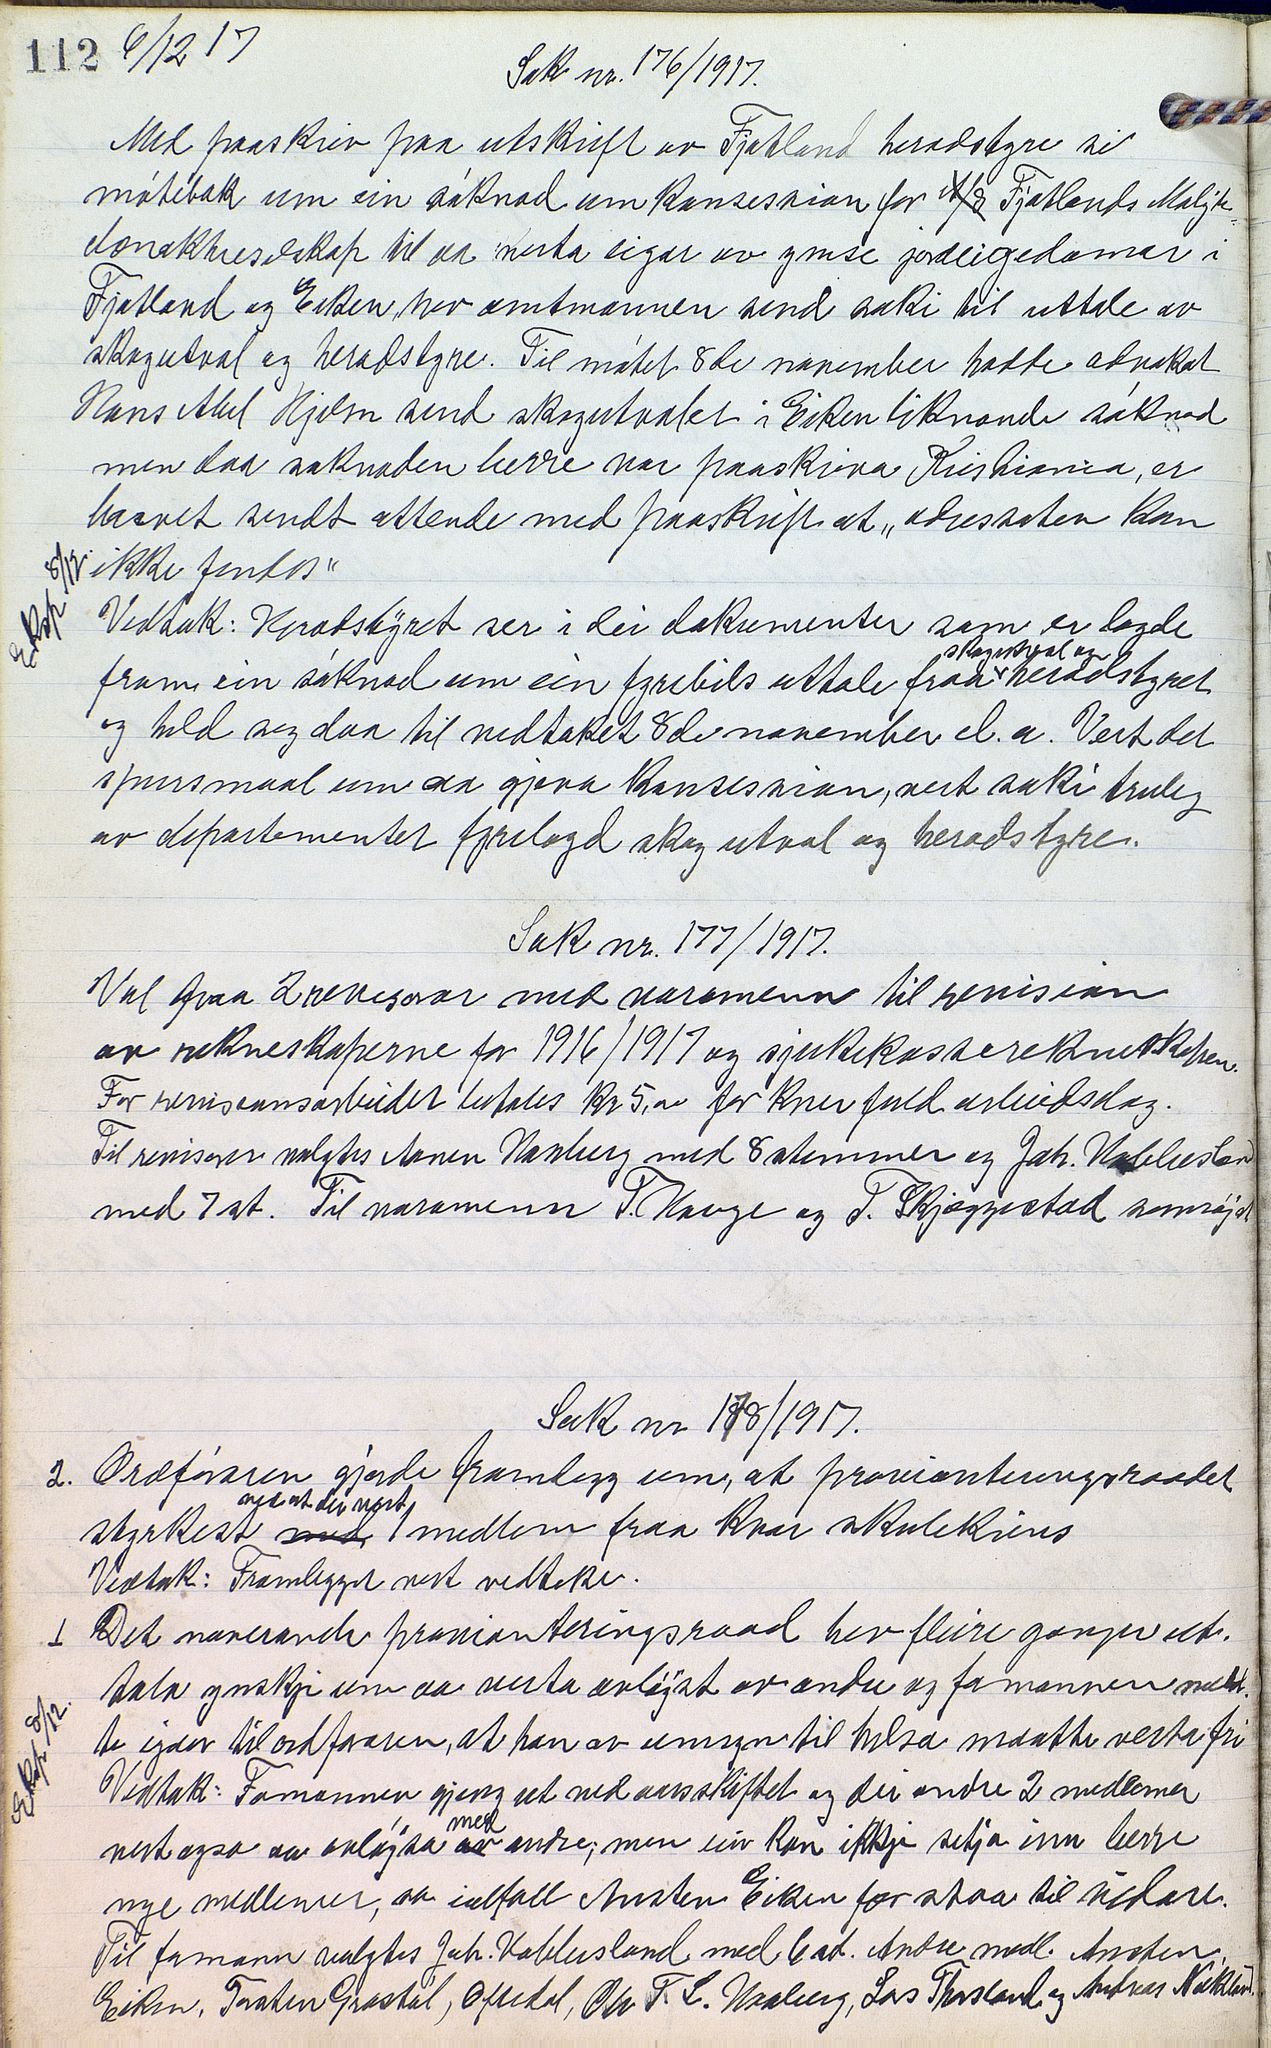 112 6/12 17
Sak nr. 176/1917.
Med paaskriv paa utskrift av Fjotland heradstyre si
møtebok um ein søknad um konsession for A/S Fjotlands Molyb-
dænaktieselskap til aa verta eigar av ymse jordeigedomar i
Fjotland og Eiken, hev amtmannen send saki til uttale av
skogutval og heradstyre. Til møtet 8de november hadde advokat
Hans Abel Hjelm send skogutvalet i Eiken liknande søknad
men daa søknaden berre var paaskriva Kristiania, er
brevet sendt attende med paaskrift at "adressaten kan
ikke findes"
Ekspe 8/12.
Vedtak: Heradstyret ser i dei dokumenter som er lagde
fram ein søknad um ein fyrebils uttale fraa skogutval og heradstyret
og held seg daa til vedtaket 8de november d. a. Vert det
spursmaal um aa gjeva konsession, vert saki truleg
av departementet fyrelagd skogutval og heradstyre.
Sak nr. 177/1917.
Val paa 2 revisorar med varamenn til revision
av rekneskaperne for 1916/1917 og sjukekasserekneskapen.
For revisionsarbeidet betales kr 5,00 for kver full arbeidsdag.
Til revisorer valgtes Aanen Haaberg med 8 stemmer og Joh. Vabblesland
med 7 st. Til varamenn T. Hauge og T. Skjeggestad samrøjst
Sak nr 178/1917.
2. Ordføraren gjorde framlegg um, at provianteringsraadet
styrkest med at dei vert 1 medlem fraa kvar skulekrins
Vedtak: Framlegget vert vedteke.
1 Det noverande provianteringsraad hev fleire gonger ut-
tala ynskje um aa verta avløyst av andre og formannen meldt-
te igaar til ordføraren, at han av umsyn til helsa maatte verta fri
Ekspe 8/12.
Vedtak: Formannen gjeng ut ved aarsskiftet og dei andre 2 medlemer
vert ogso aa avløysa med andre; men ein kan ikkje setja inn berre
nye medlemer, aa ialfall Ansten Eiken fær staa til vidare.
Til formann valgtes Joh. Vabblesland med 6 st. Andre medl. Ansten
Eiken, Torsten Grostøl, Ofredal, Ole T. L. Haaberg, Lars Thorsland og Andreas